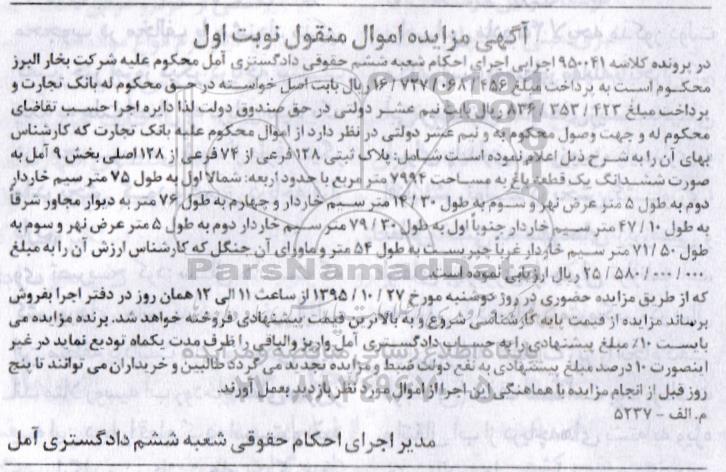 آگهی مزایده اموال منقول نوبت اول
در پرونده کلاسه ۹۵۰۰۴۱ اجرایی اجرای احکام شعبه ششم حقوقی دادگستری آمل محکوم علیه شرکت بخار البرز
محکوم است به پرداخت مبلغ ۱۶/۷۲۷/۰۶۸/۴۵۶ ریال بابت اصل خواسته در حق محکوم له بانک تجارت و
پرداخت مبلغ ۸۳۶/۳۵۳/۴۲۳ ریال بابت نیم عشر دولتی در حق صندوق دولت لذا دایره اجرا حسب تقاضای
محکوم له و جهت وصول محکوم به و نیم عشر دولتی در نظر دارد از اموال محکوم علیه بانک تجارت که کارشناس
بهای آن را به شرح ذیل اعلام نموده است شامل: پلاک ثبتی ۱۲۸ فرعی از ۷۴ فرعی از ۱۲۸ اصلی بخش ۹ آمل به
صورت ششدانگ یک قطعه باغ به مساحت ۷۹۹۴ متر مربع با حدود اربعه: شمالا اول به طول ۷۵ متر سیم خاردار
دوم به طول ۵ متر عرض نهر و سوم به طول ۱۴/۳۰ متر سیم خاردار و چهارم به طول ۷۶ متر به دیوار مجاور شرقا
به طول ۴۷/۱۰ متر سیم خاردار جنوباً اول به طول ۷۹/۳۰ متر سیم خاردار دوم به طول ۵ متر عرض نهر و سوم به
طول ۷۱/۵۰ متر سیم خاردار غرباً چپر بست به طول ۵۴ متر و ماورای آن جنگل که کارشناس ارزش آن را به مبلغ
۲۵/۵۸۰/۰۰۰/۰۰۰ ریال ارزیابی نموده است.
که از طریق مزایده حضوری در روز دوشنبه مورخ ۱۳۹۵/۱۰/۲۷ از ساعت ۱۱ الی ۱۲ همان روز در دفتر اجرا بفروش
برساند مزایده از قیمت پایه کارشناسی شروع و به بالاترین قیمت پیشنهادی فروخته خواهد شد. برنده مزایده می
بایست ۱۰٪ مبلغ پیشنهادی را به حساب دادگستری آمل واریز والباقی را ظرف مدت یکماه تودیع نماید در غیر
اینصورت ۱۰ درصد مبلغ پیشنهادی به نفع دولت ضبط و مزایده تجدید می گردد طالبین و خریداران می توانند تا پنج
روز قبل از انجام مزایده با هماهنگی این اجرا از اموال مورد نظر بازدید بعمل آورند.
م. الف - ۵۲۳۷
مدیر اجرای احکام حقوقی شعبه ششم دادگستری آمل
ParsNamadData